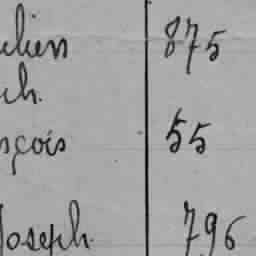 ulien 875
ch.
nçois 55
Joseph 796